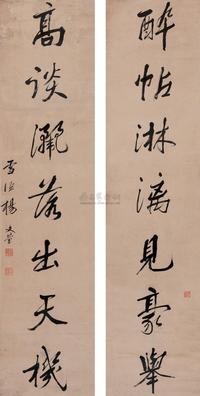 醉帖淋漓見豪舉
高談灑落出天機
雪漁楊文瑩